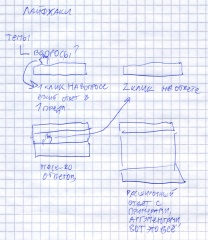 ЛАЙФХАКИ
ТЕМЫ
ВОПРОСЫ?
1 КЛИК НА ВОПРОСЕ
ОТВЕТ В
2 КЛИК НА ОТВЕТЕ
ОТВЕТОВ
РАСШИРЕННЫЙ
ОТВЕТ С
ПРИМЕРАМИ,
АРГУМЕНТАМИ
ВОТ ЭТО ВСЁ